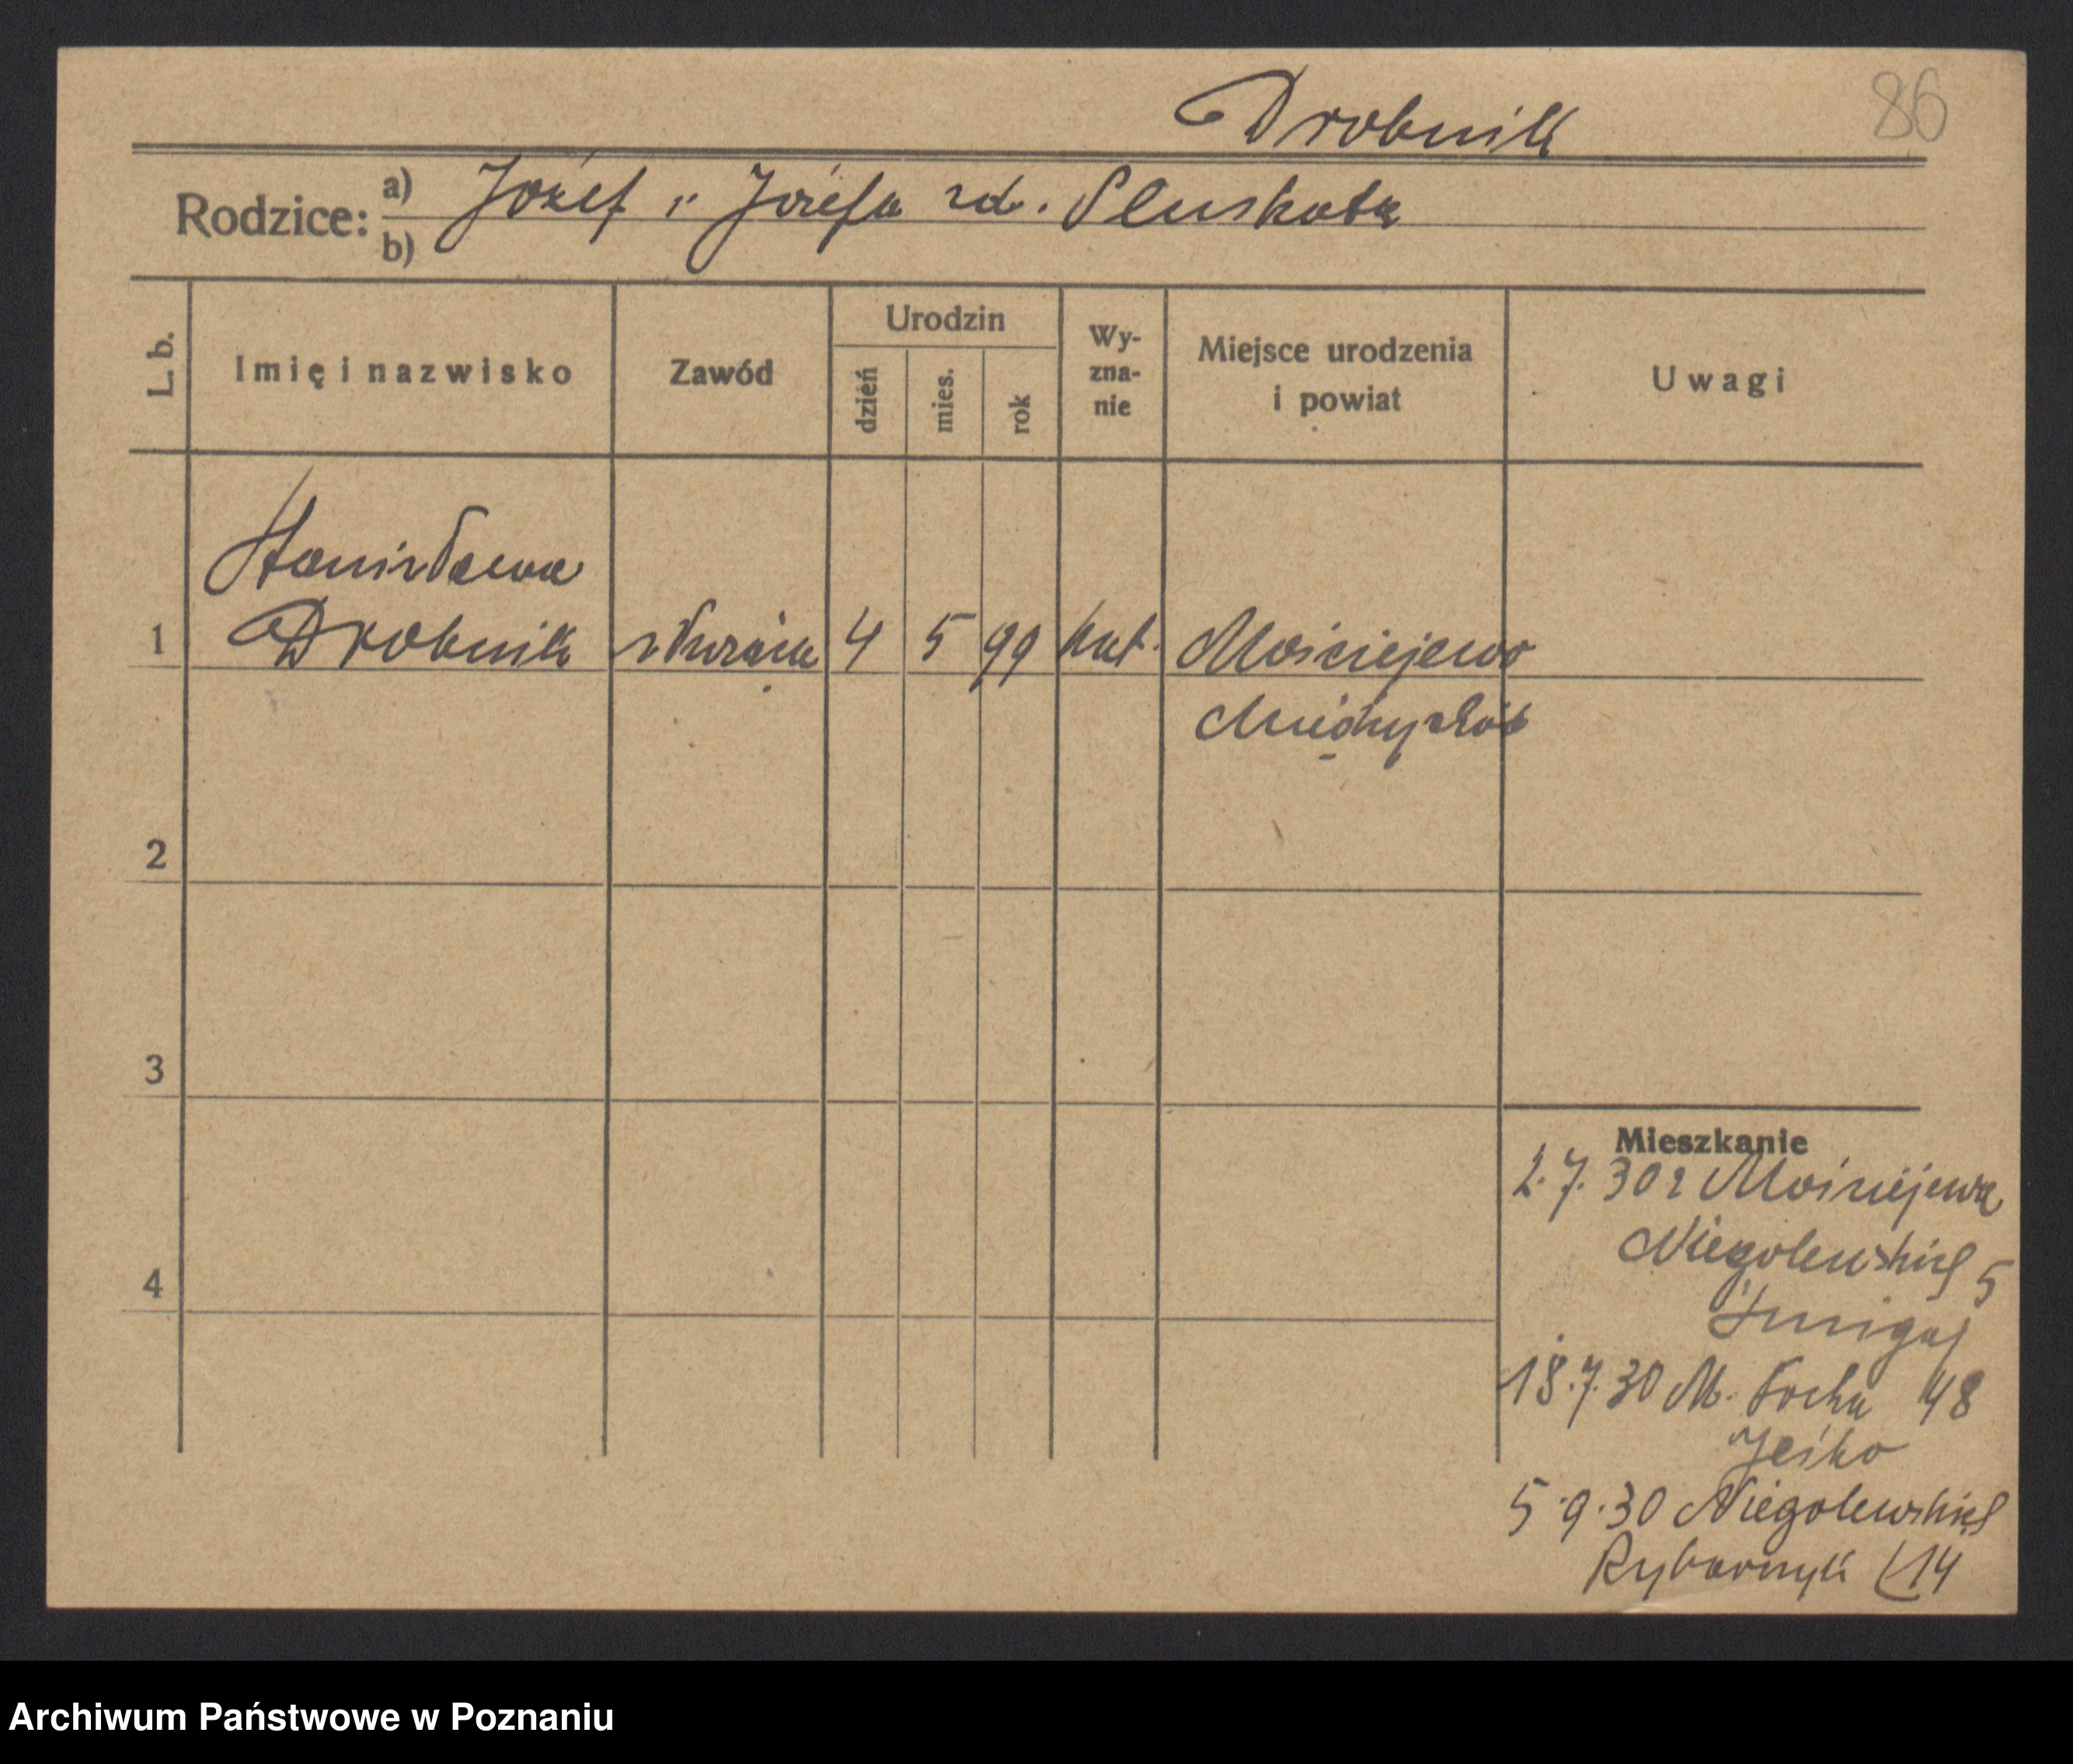 86
Drobnik
Rodzice: a) Józef i Józefa zd. Pluskota
b)
L. b.
Imię i nazwisko
Zawód
Urodzin
dzień
mies.
rok
Wy-
zna-
nie
Miejsce urodzenia
i powiat
Uwagi
Stanisława
1 Drobnik służąca 4 5 99 kat. Mościejewo
Międzychód
2
3
4
Mieszkanie
2.7.30 z Mościejewa
Niegolewskich 5
Śmigaj
18.7.30 M. Focha 48
Jeśko
5.9.30 Niegolewskich
Rybarczyk 14
Archiwum Państwowe w Poznaniu